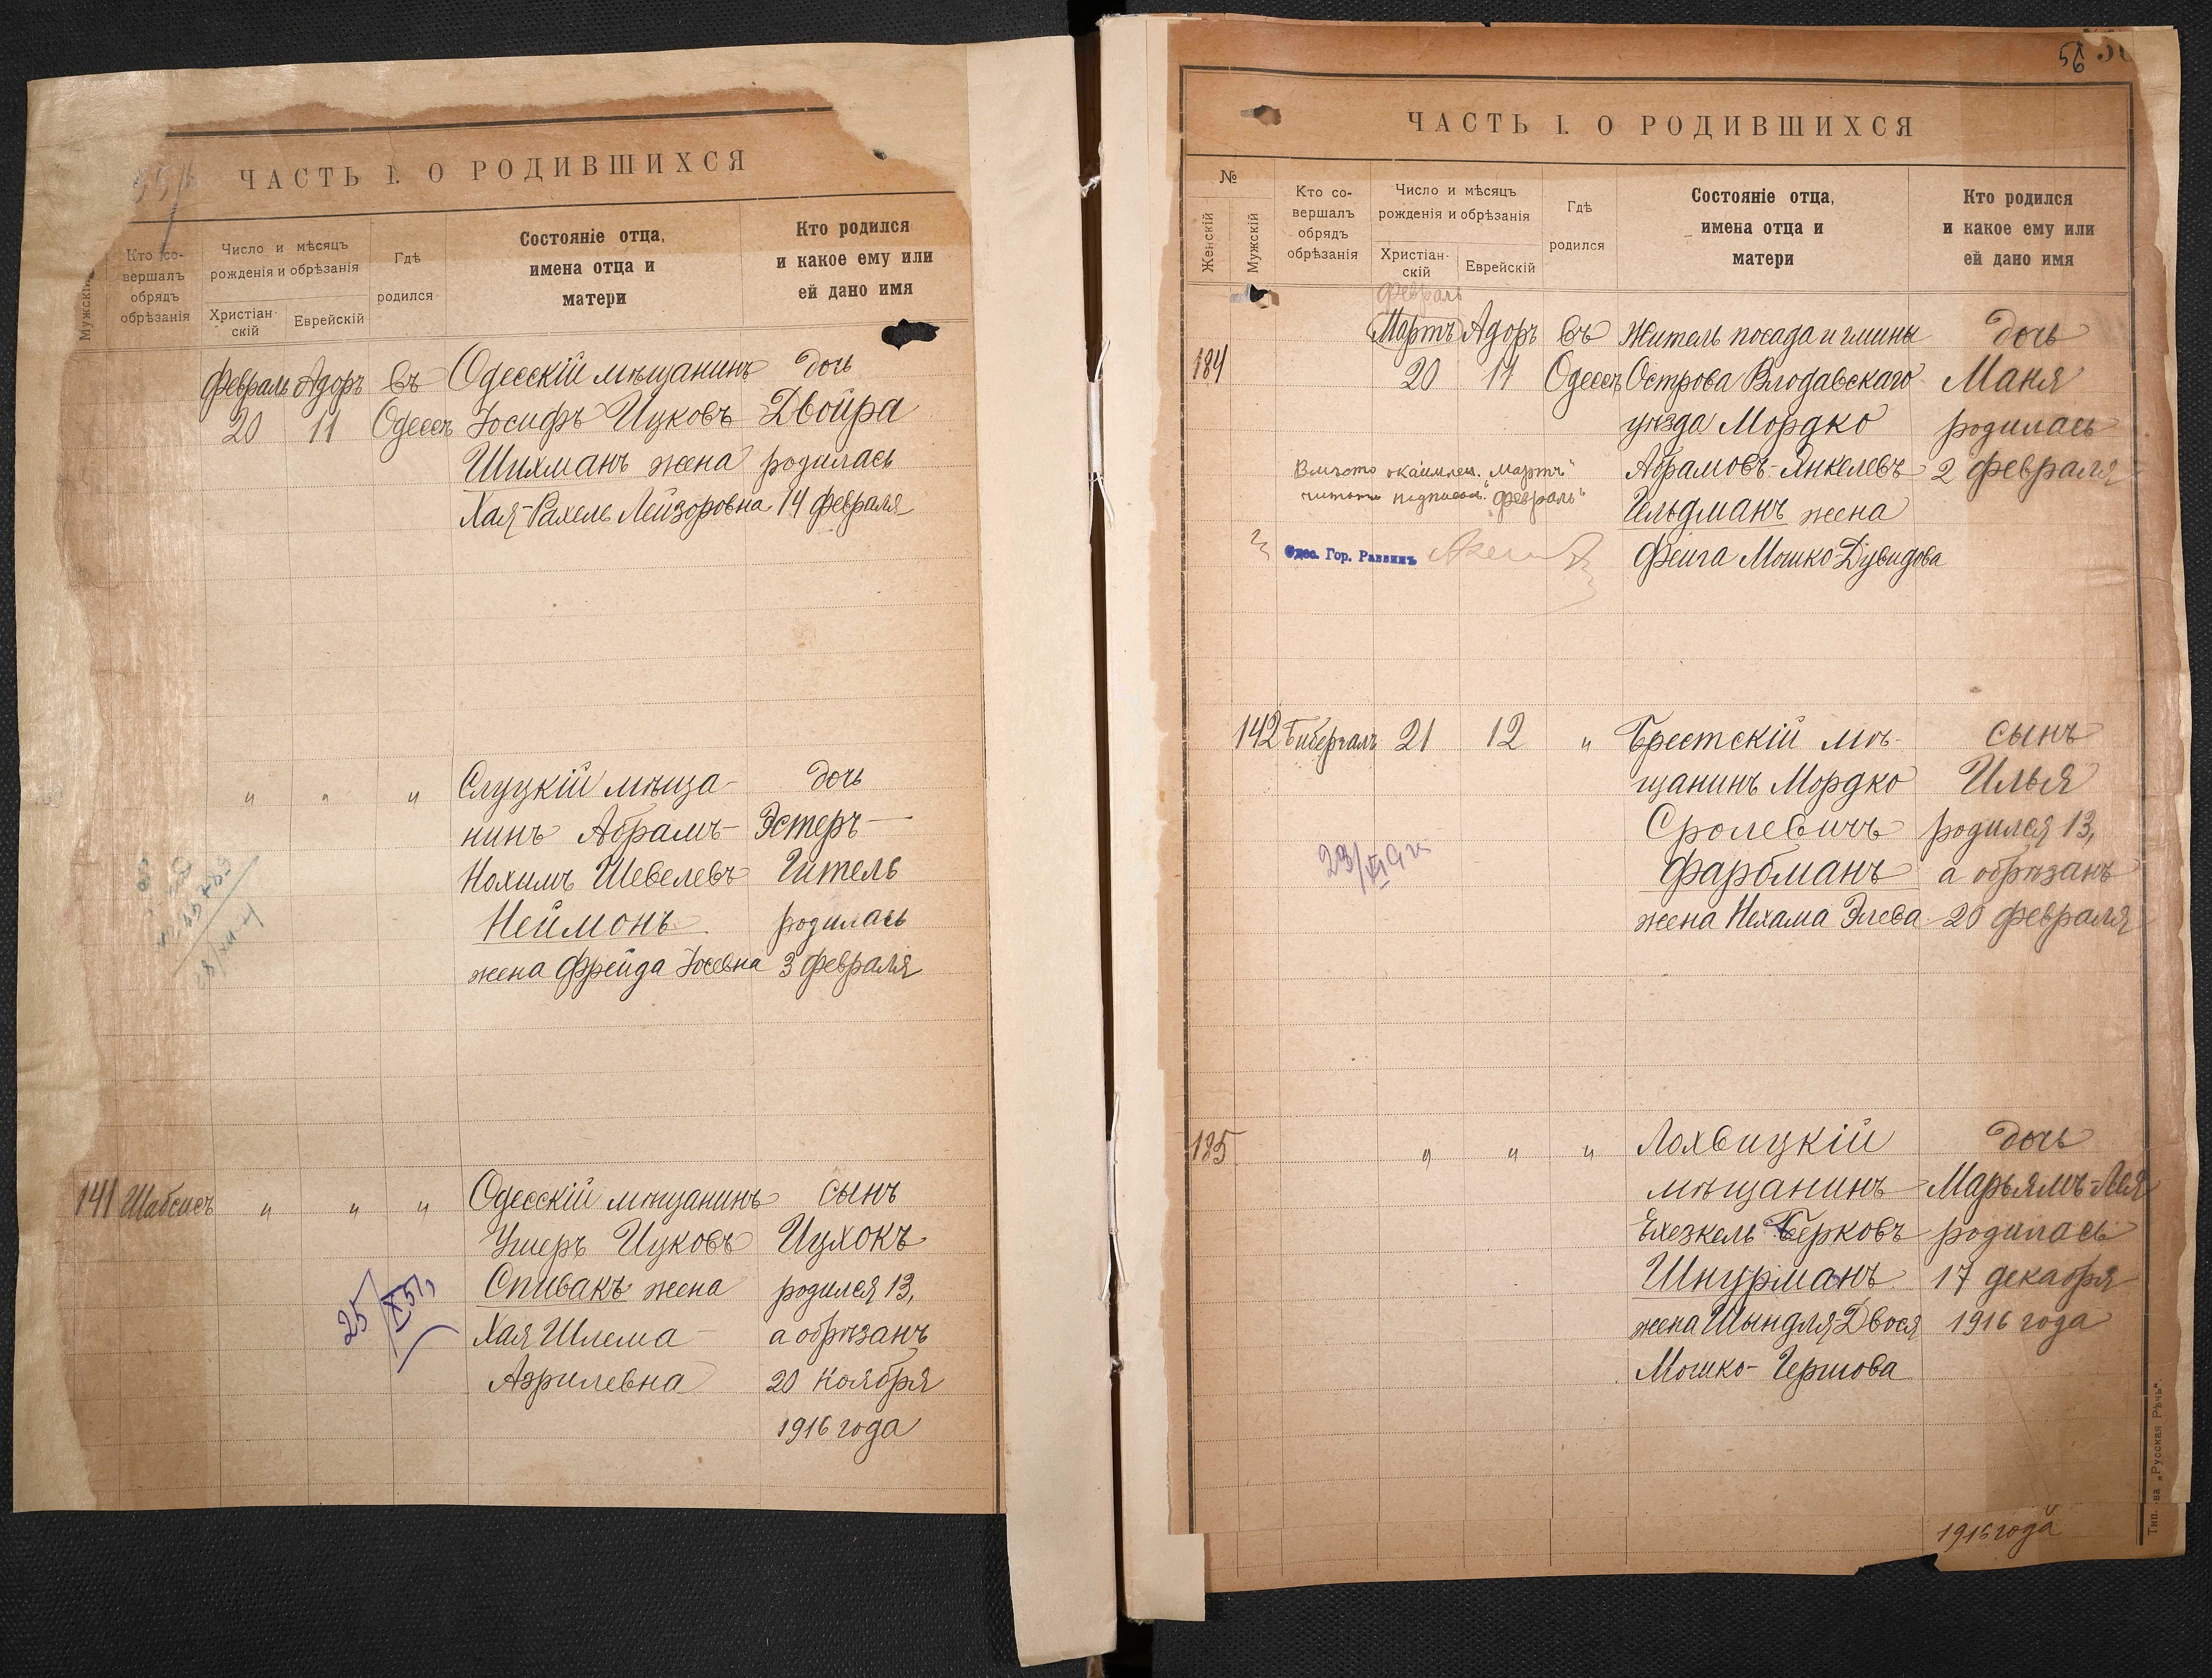 ЧАСТЬ I. О РОДИВШИХСЯ
Мужскій
Кто со-
вершалъ
обрядъ
обрѣзанія
Число и мѣсяцъ
рожденія и обрѣзанія
Христіан-
скій
Еврейскій
Гдѣ
родился
Состояніе отца,
имена отца и
матери
Кто родился
и какое ему или
ей дано имя
Февраль Адоръ въ Одесскій мѣщанинъ дочь
20 11 Одессѣ Іосифъ Ицковъ Двойра
Шихманъ жена родилась
Хая-Рахель Лейзоровна 14 февраля
" " " Слуцкій мѣща- дочь
нинъ Абрамъ- Эстеръ-
Нохимъ Шевелевъ Гитель
Неймонъ родилась
жена Фрейда Іосевна 3 февраля
141 Шабсисъ " " " Одесскій мѣщанинъ сынъ
Ушеръ Ицковъ Ицхокъ
Спивакъ жена родился 13,
Хая Шлема- а обрѣзанъ
Азрилевна 20 Ноября
1916 года
25/IX 51
56
ЧАСТЬ I. О РОДИВШИХСЯ
№
Женскій
Мужскій
Кто со-
вершалъ
обрядъ
обрѣзанія
Число и мѣсяцъ
рожденія и обрѣзанія
Христіан-
скій
Еврейскій
Гдѣ
родился
Состояніе отца,
имена отца и
матери
Кто родился
и какое ему или
ей дано имя
Февраль
Мартъ Адоръ въ Житель посада и гмины дочь
184 20 11 Одессѣ Острова Влодавскаго Маня
уѣзда Мордко родилась
Абрамовъ-Янкелевъ 2 февраля
Гельдманъ жена
Фейга Мошко-Дувидова
Вмѣсто "мартъ"
читать "февраль"
Одес. Гор. Раввинъ
142 Биберъалъ 21 12 " Брестскій мѣ- сынъ
щанинъ Мордко Илья
Сролевичъ родился 13,
Фарбманъ а обрѣзанъ
жена Нехама Элева 20 февраля
185 " " " Лохвицкій дочь
мѣщанинъ Марьямъ-Лея
Ехезкель Берковъ родилась
Шнурманъ 17 декабря
жена Шындля-Двося 1916 года
Мошко-Гершова
1916 года
Тип. -ва „Русская Рѣчь".